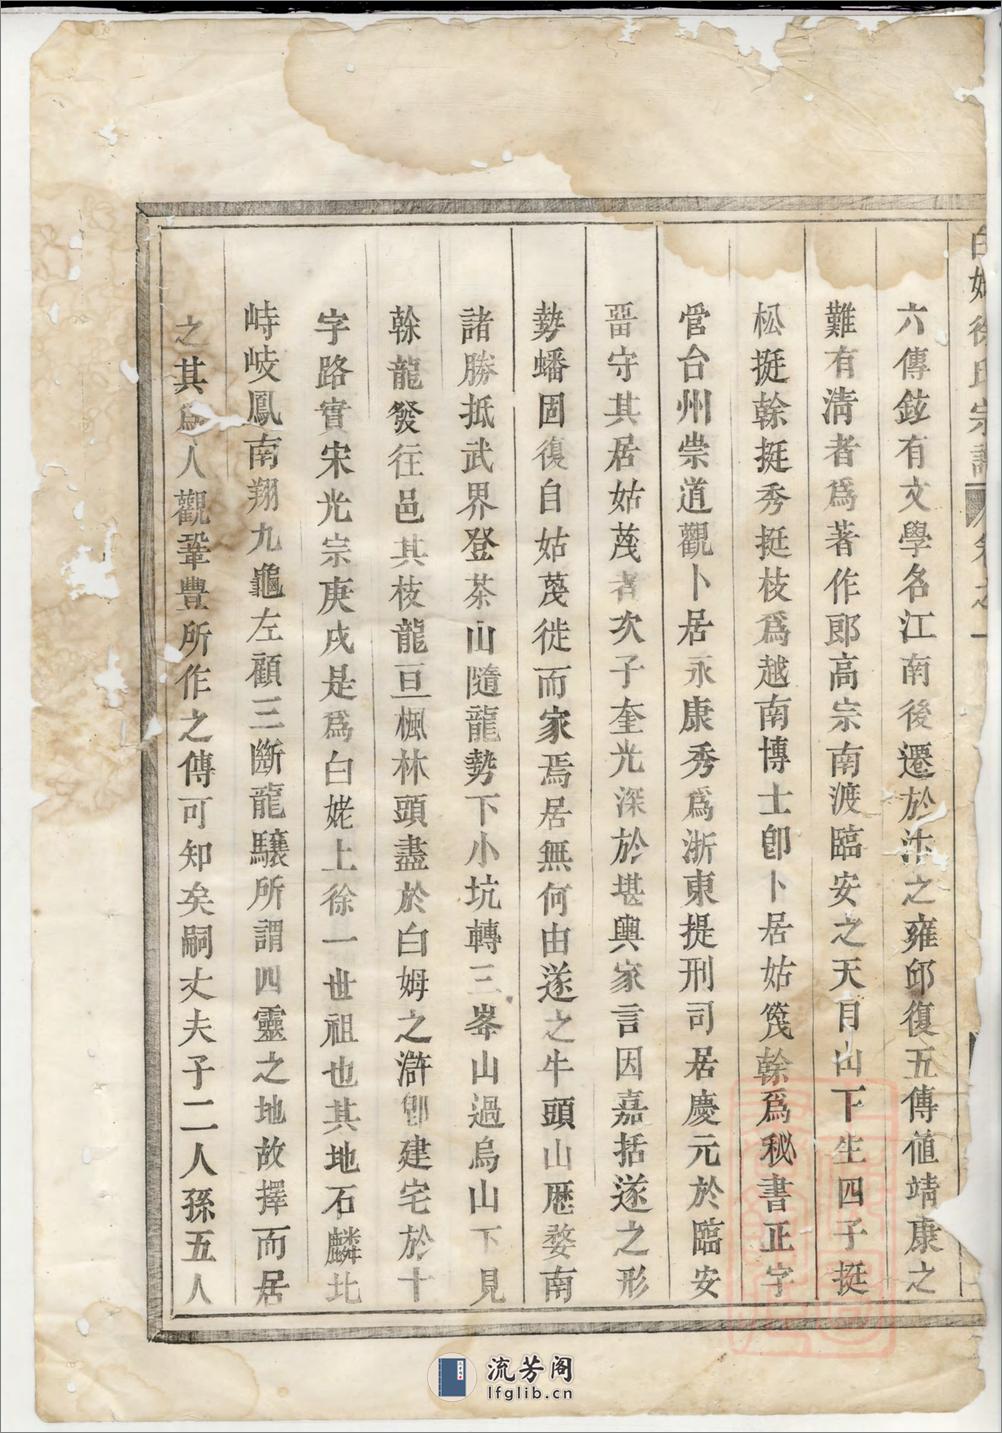 白姥徐氏宗譜 卷之一
六傳鉉有文學名江南後遷於汴之雍邱復五傳値靖康之
難有淸者爲著作郎高宗南渡臨安之天目山下生四子挺
松挺榦挺秀挺枝爲越南博士卽卜居姑篾榦爲秘書正字
管台州崇道觀卜居永康秀爲浙東提刑司居慶元於臨安
畱守其居姑蔑者次子奎光深於堪輿家言因嘉括遂之形
勢蟠固復自姑蔑徙而家焉居無何由遂之牛頭山歷婺南
諸勝抵武界登茶山隨龍勢下小坑轉三峯山過烏山下見
榦龍發往邑其枝龍亘楓林頭盡於白姆之滸卽建宅於十
字路實宋光宗庚戌是爲白姥上徐一世祖也其地石麟北
峙岐鳳南翔九龜左顧三斷龍驤所謂四靈之地故擇而居
之其爲人觀鞏豊所作之傳可知矣嗣丈夫子二人孫五人
流芳阁
lfglib.cn